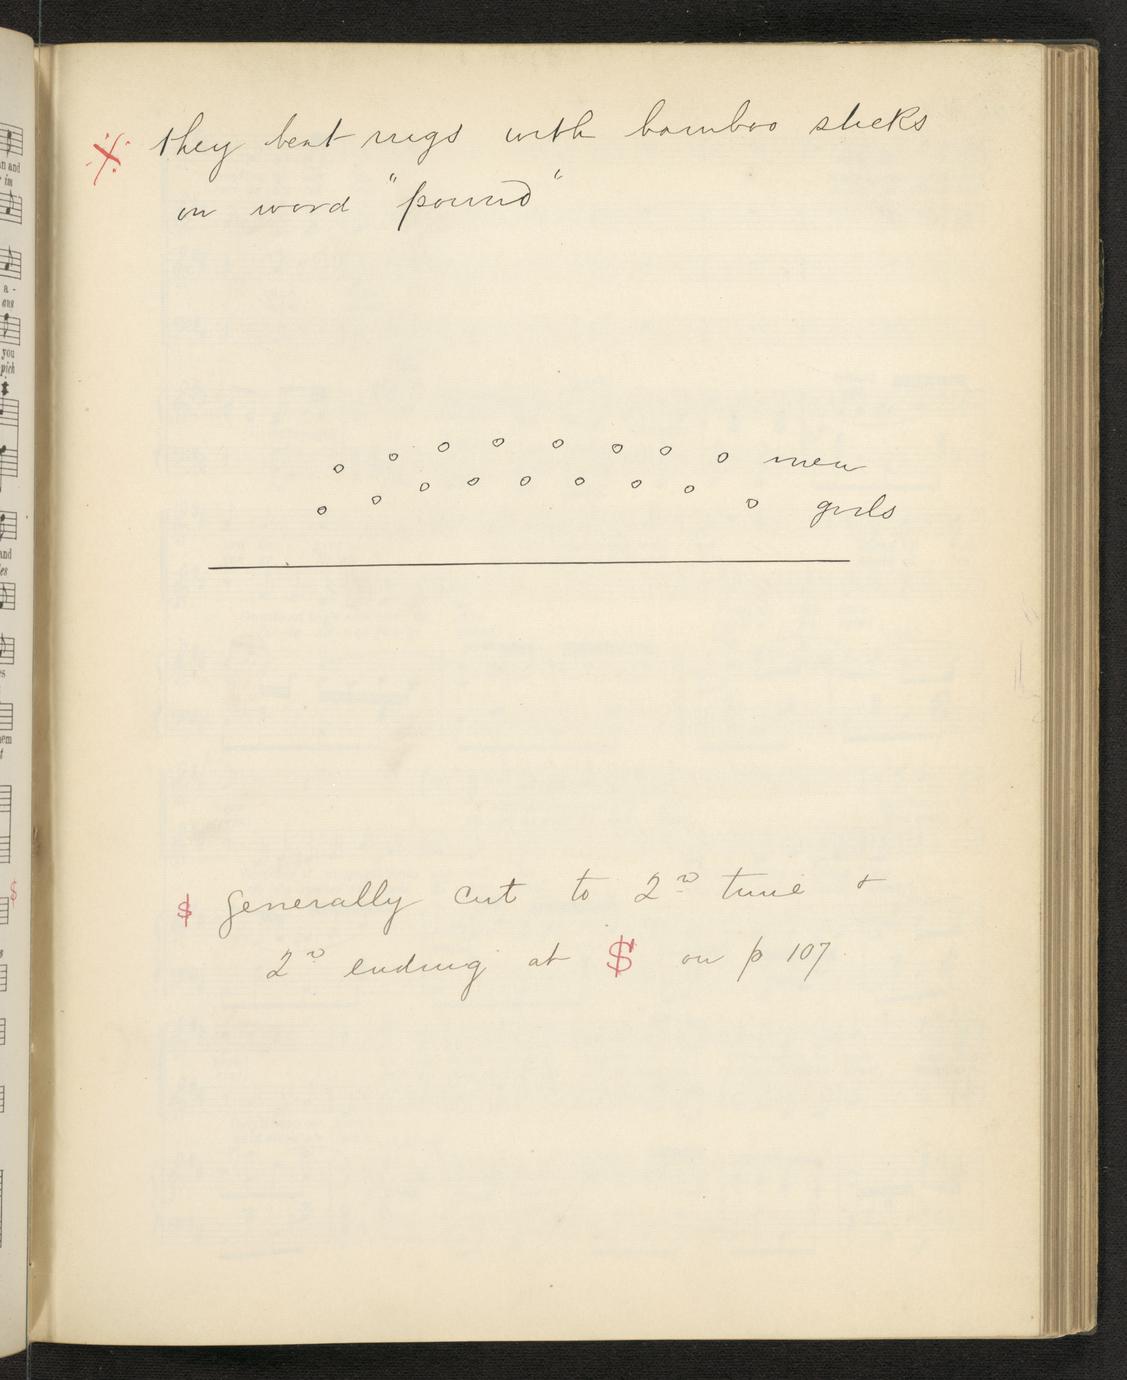 ※ they beat rugs with bamboo sticks
on word "pound"
men
girls
$ Generally cut to 2ⁿᵈ time &
2ⁿᵈ ending at $ on p 107